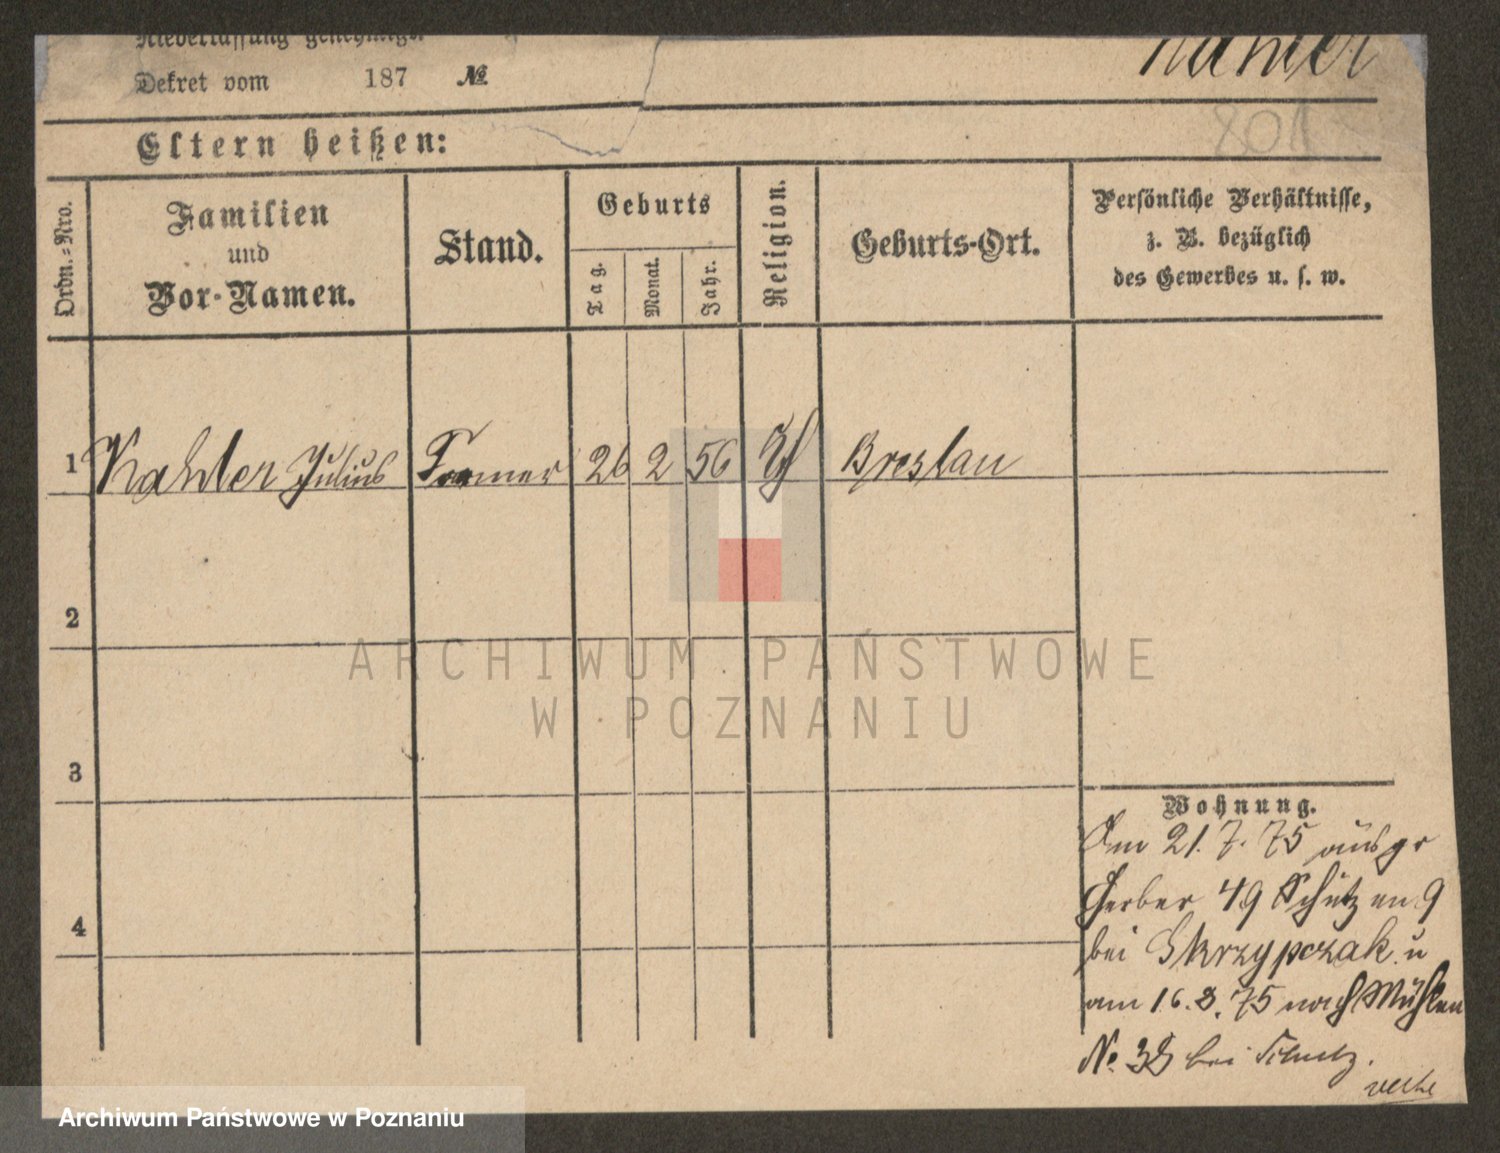 Niederlassung genehmigt
Dekret vom 187 №
Kahler
201
Eltern heißen:
Ordn.-Nro.
Familien
und
Vor-Namen.
Stand.
Geburts
Tag.
Monat.
Jahr.
Religion.
Geburts-Ort.
Persönliche Verhältnisse,
z. B. bezüglich
des Gewerbes u. s. w.
1 Kahler Julius Former 26 2 56 Breslau
2
3
4
Wohnung.
Am 21. 7. 75 aus gr
Gerber 49 Schützen 9
bei Skrzypczak u
am 16. 8. 75 nach Mühlen
No 38 bei
ARCHIWUM PAŃSTWOWE
W POZNANIU
Archiwum Państwowe w Poznaniu